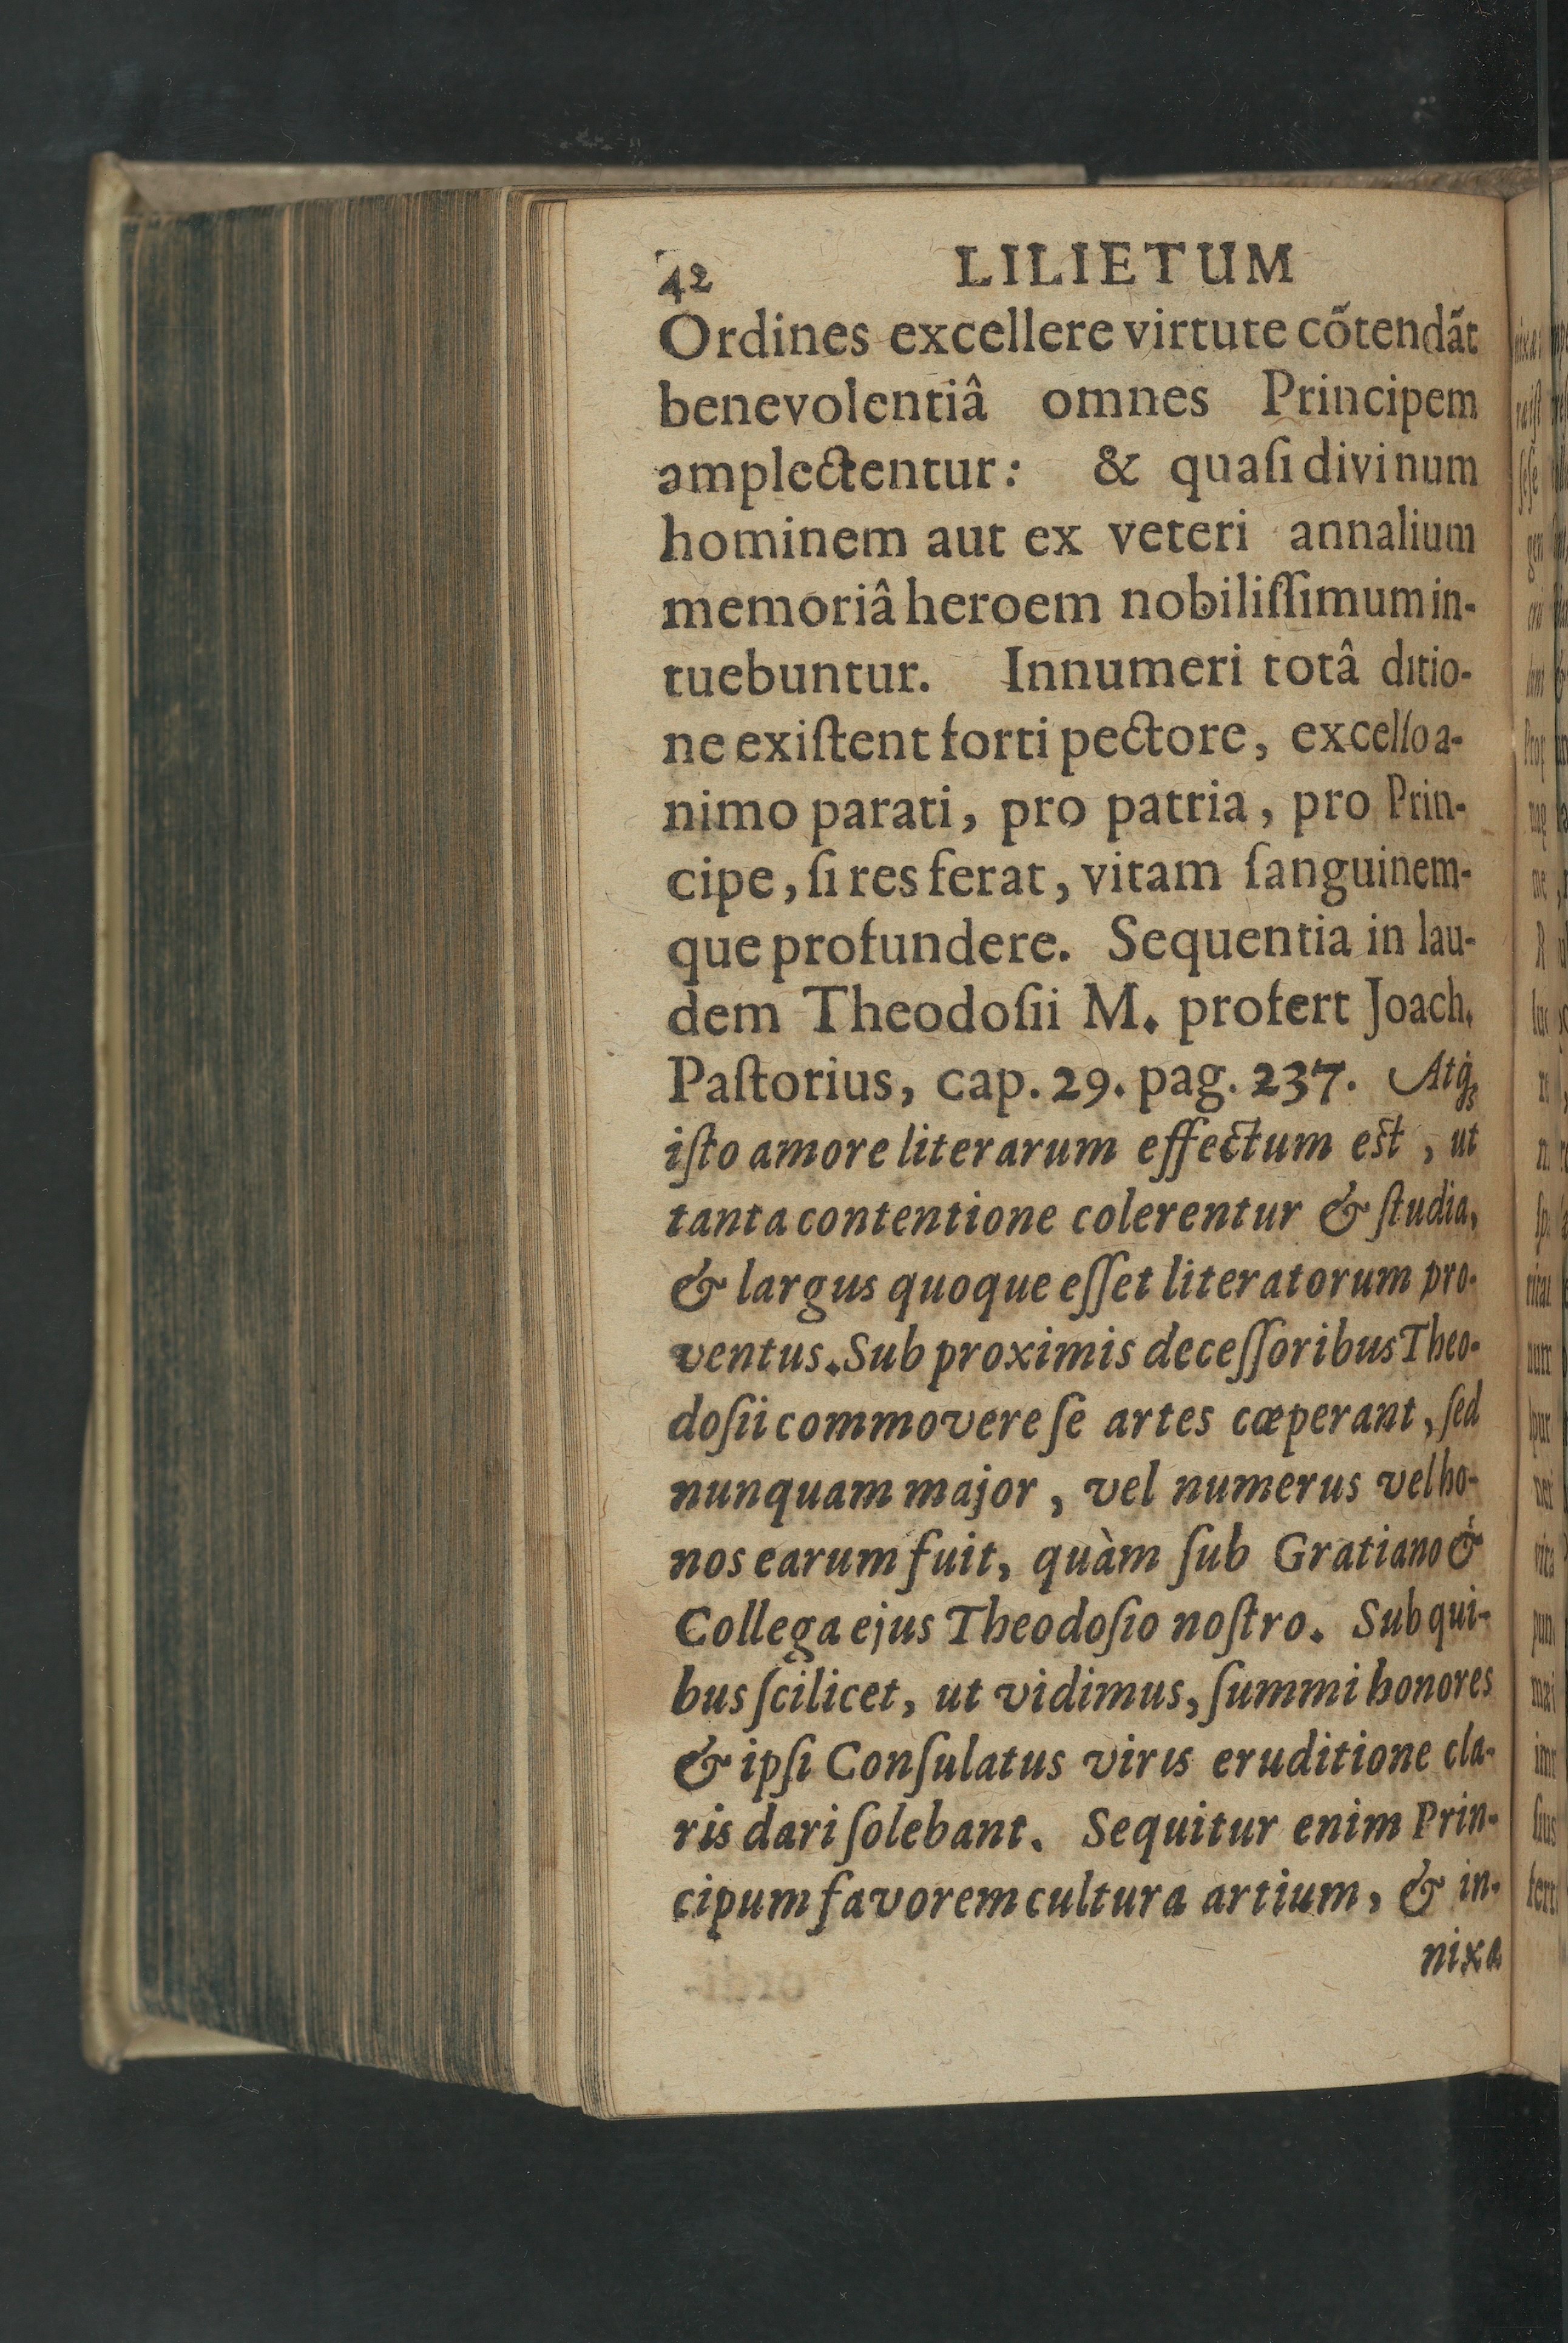 42 LILIETUM
Ordines excellere virtute cõtendãt
benevolentiâ omnes Principem
amplectentur: & quaſi divinum
hominem aut ex veteri annalium
memoriâ heroem nobiliſſimum in-
tuebuntur. Innumeri totâ ditio-
ne exiſtent forti pectore, excelſo a-
nimo parati, pro patria, pro Prin-
cipe, ſi res ferat, vitam ſanguinem-
que profundere. Sequentia in lau-
dem Theodoſii M. profert Joach.
Paſtorius, cap. 29. pag. 237. Atq́;
iſto amore literarum effectum est, ut
tanta contentione colerentur & ſtudia,
& largus quoque eſſet literatorum pro-
ventus. Sub proximis deceſſoribus Theo-
doſii commovere ſe artes cæperant, ſed
nunquam major, vel numerus vel ho-
nos earum fuit, quàm ſub Gratiano &
Collega ejus Theodoſio noſtro. Sub qui-
bus ſcilicet, ut vidimus, ſummi honores
& ipſi Conſulatus viris eruditione cla-
ris dari ſolebant. Sequitur enim Prin-
cipum favorem cultura artium, & in-
nixa